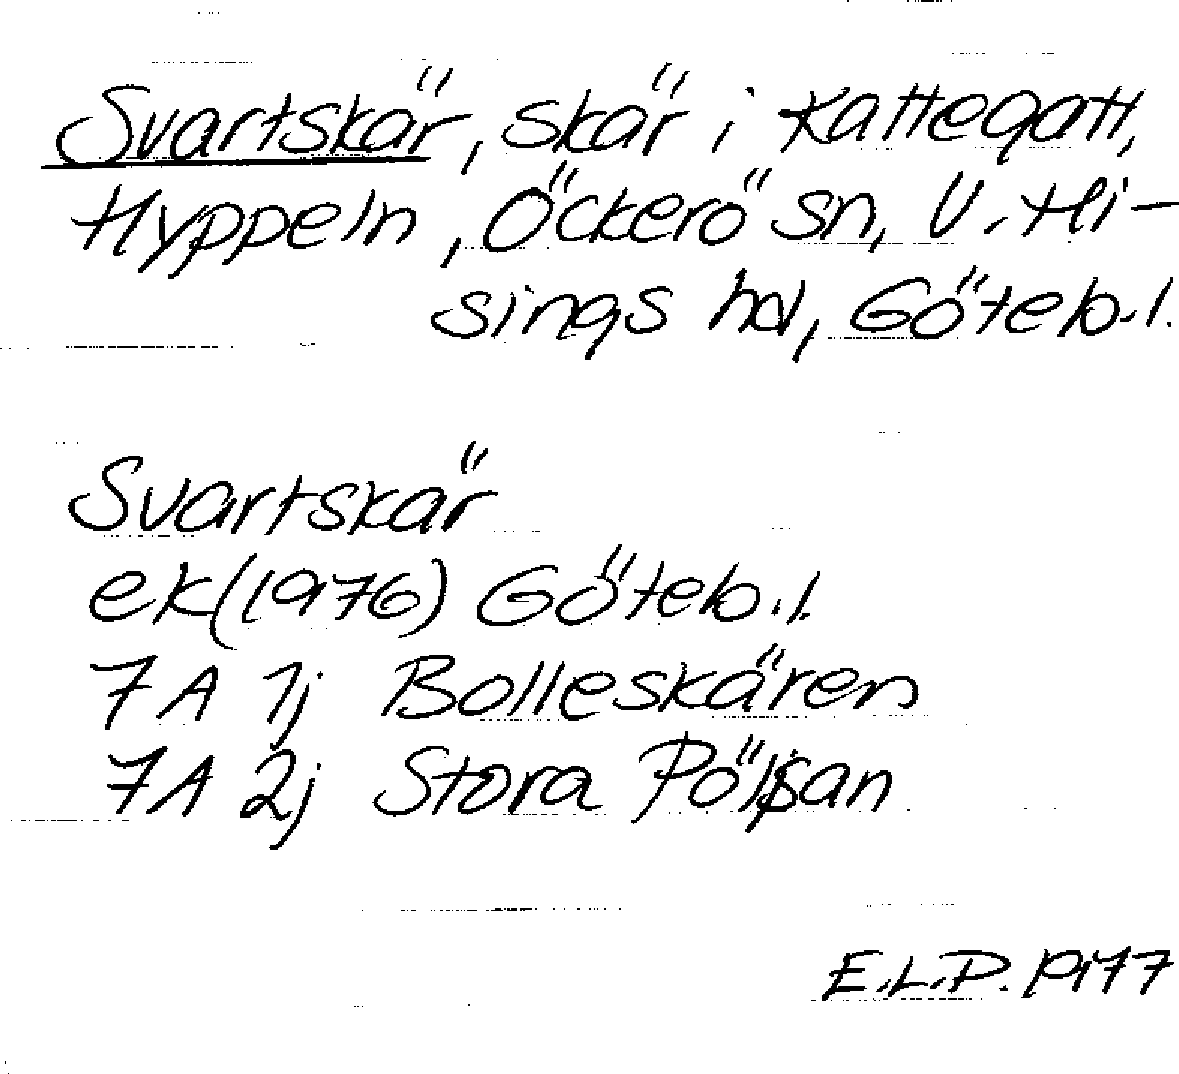 Svartskär, skär i Kattegatt,
Hyppeln, Öckerö sn, V. Hi-
sings hd, Göteb.l.
Svartskär
ek(1976) Göteb.l.
7A 1j Bolleskären
7A 2j Stora Pölsan
E.L.P. 1977